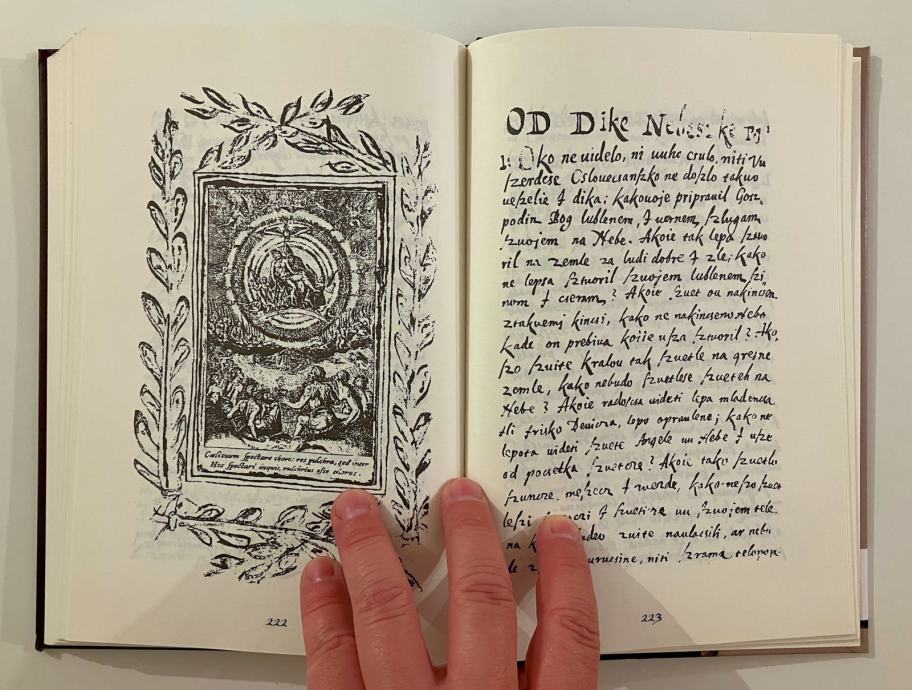 Cælituum spectare choro: res pulchra, sed inter
Hos spectari inquit, pulchrius esse
222
OD Dike Nebeszke
1. Oko ne uidelo, ni uuho csulo, niti Vu
szerdcse Cslouecsanszko ne doszlo takuo
ueszelie I dika; kakouoje priprauil Gosz,
podin Bog lublenem, I uernem szlugam
szuojem na Nebe. Akoie tak lepa sztuo
ril na zemle za ludi dobre I zle; kako
ne lepsa sztuoril szuojem lublenem szi,
nom I cseram? Akoie szuet ou nakincsen
ztakuemi kincsi, kako ne nakincseno Nebo
kade on prebiua koiie usza sztuoril? Ako,
szo szuite kralou tak szuetle na gresne
zemle, kako nebudo szuetlese szueteh na
Nebe? Akoie radoszt uideti lepa mladencza
ili frisko Deuicza, lepo opraulene; kako ne
lepota uideti szuete Angele uu Nebe I usze
od pocsetka szuetcze? Akoie tako szuetlo
szuncze, meszecz I zuezde, kako ne szo szuet
lesi I szuetize uu szuojem tele.
na zuite naulacsih, ar nebu
niti szrama
223